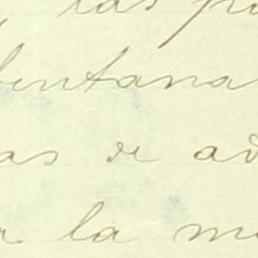 las p
entana
as de ad
la m